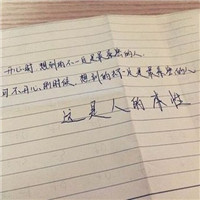 开心时,想到的不一定是最喜欢的人.
可不开心的时候,想到的却一定是最喜欢的人
这是人的本性